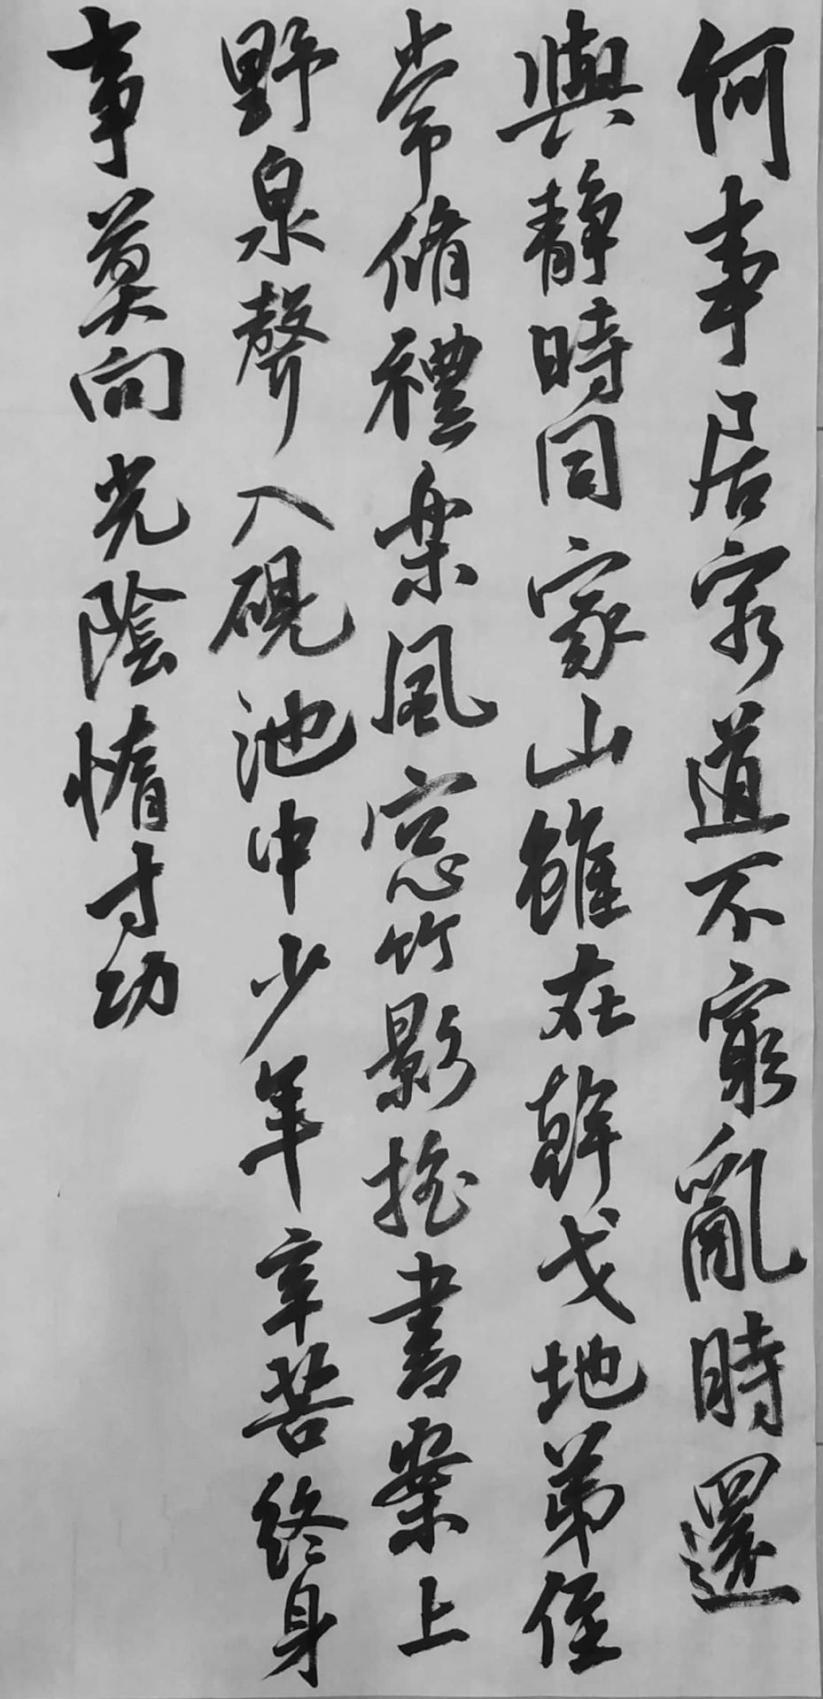 何事居穷道不窮亂時還
與静時同家山雖在幹戈地弟侄
常脩禮樂風窓竹影摇書案上
野泉聲入硯池中少年辛苦終身
事莫向光陰惰寸功